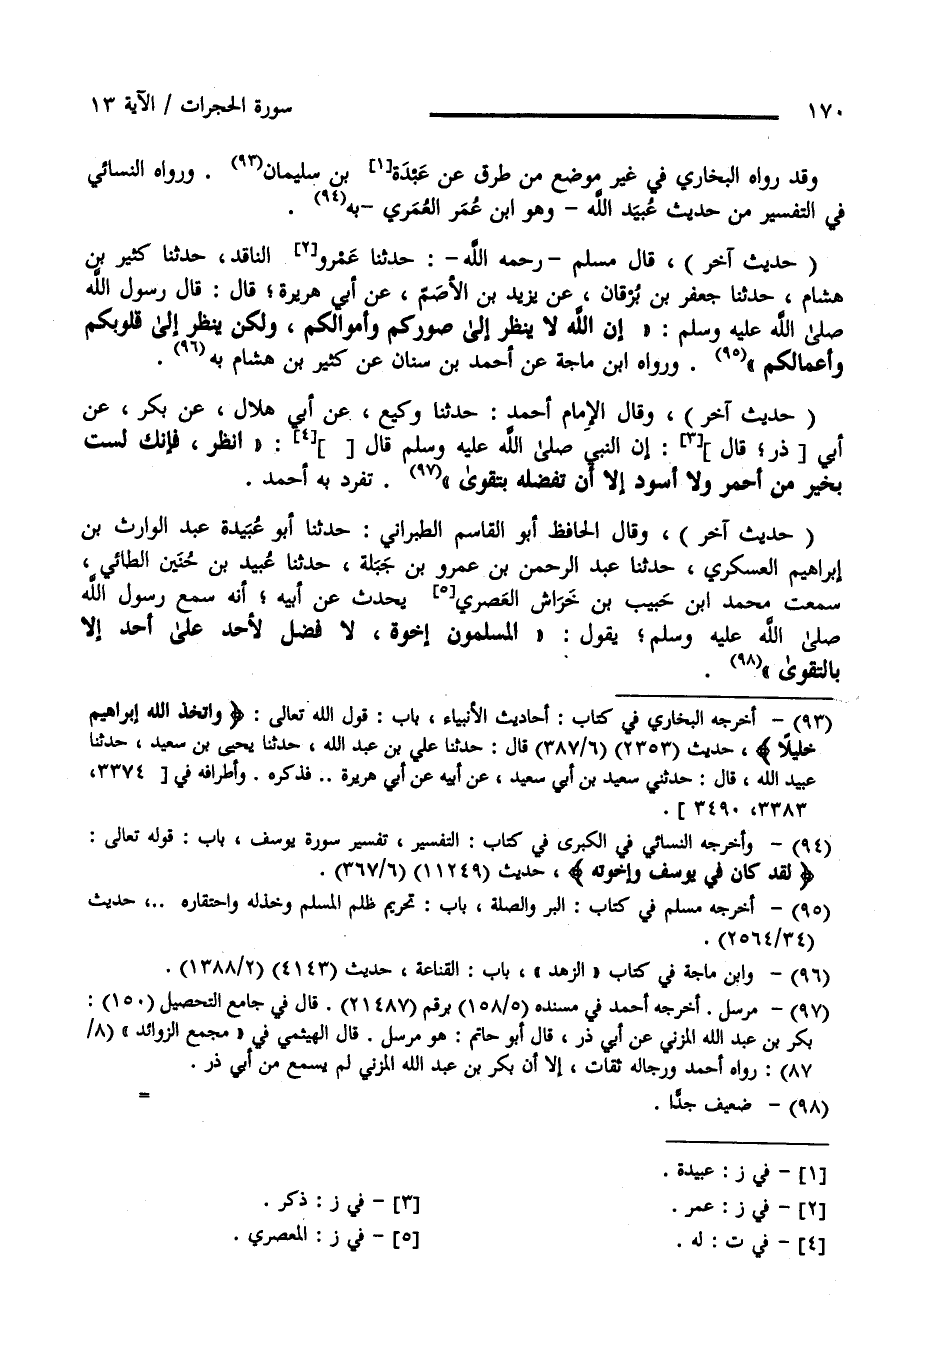 ١٧٠ سورة الحجرات / الآية ١٣
وقد رواه البخاري في غير موضع من طرق عن عَبْدَة[١] بن سليمان(٩٣) . ورواه النسائي
في التفسير من حديث عُبيَد اللَّه – وهو ابن عُمَر العُمَري –به(٩٤) .
( حديث آخر ) ، قال مسلم –رحمه اللَّه– : حدثنا عَمْرو[٢] الناقد، حدثنا كثير بن
هشام ، حدثنا جعفر بن بُرْقان ، عن يزيد بن الأصَمّ ، عن أبي هريرة؛ قال : قال رسول اللَّه
صلىٰ اللَّه عليه وسلم : « إن اللَّه لا ينظر إلىٰ صوركم وأموالكم ، ولكن ينظر إلىٰ قلوبكم
وأعمالكم »(٩٥) . ورواه ابن ماجة عن أحمد بن سنان عن كثير بن هشام به(٩٦) .
( حديث آخر ) ، وقال الإمام أحمد : حدثنا وكيع ، عن أبي هلال ، عن بكر ، عن
أبي [ ذر؛ قال ][٣] : إن النبي صلىٰ اللَّه عليه وسلم قال [ ][٤] : « انظر ، فإنك لست
بخير من أحمر ولا أسود إلا أن تفضله بتقوىٰ »(٩٧) . تفرد به أحمد .
( حديث آخر ) ، وقال الحافظ أبو القاسم الطبراني : حدثنا أبو عُبَيدة عبد الوارث بن
إبراهيم العسكري ، حدثنا عبد الرحمن بن عمرو بن جَبَلة ، حدثنا عُبيد بن حُنَين الطائي ،
سمعت محمد ابن حَبيب بن خَرَاش العَصري[٥] يحدث عن أبيه ؛ أنه سمع رسول اللَّه
صلىٰ اللَّه عليه وسلم؛ يقول : « المسلمون إخوة ، لا فضل لأحد علىٰ أحد إلا
بالتقوىٰ »(٩٨) .
(٩٣) – أخرجه البخاري في كتاب : أحاديث الأنبياء ، باب : قول الله تعالى : ﴿ واتخذ الله إبراهيم
خليلًا ﴾ ، حديث (٢٣٥٣) (٣٨٧/٦) قال : حدثنا علي بن عبد الله ، حدثنا يحيى بن سعيد ، حدثنا
عبيد الله ، قال : حدثني سعيد بن أبي سعيد ، عن أبيه عن أبي هريرة .. فذكره . وأطرافه في [ ٣٣٧٤،
٣٣٨٣، ٣٤٩٠ ] .
(٩٤) – وأخرجه النسائي في الكبرى في كتاب : التفسير ، تفسير سورة يوسف ، باب : قوله تعالى :
﴿ لقد كان في يوسف وإخوته ﴾ ، حديث (١١٢٤٩) (٣٦٧/٦) .
(٩٥) – أخرجه مسلم في كتاب : البر والصلة ، باب : تحريم ظلم المسلم وخذله واحتقاره ..، حديث
(٢٥٦٤/٣٤) .
(٩٦) – وابن ماجة في كتاب « الزهد » ، باب : القناعة ، حديث (٤١٤٣) (١٣٨٨/٢) .
(٩٧) – مرسل . أخرجه أحمد في مسنده (١٥٨/٥) برقم (٢١٤٨٧) . قال في جامع التحصيل (١٥٠) :
بكر بن عبد الله المزني عن أبي ذر ، قال أبو حاتم : هو مرسل . قال الهيثمي في « مجمع الزوائد » (٨/
٨٧) : رواه أحمد ورجاله ثقات ، إلا أن بكر بن عبد الله المزني لم يسمع من أبي ذر .
(٩٨) – ضعيف جدًّا . =
[١] – في ز : عبيدة .
[٢] – في ز : عمر . [٣] – في ز : ذكر .
[٤] – في ت : له . [٥] – في ز : المعصري .